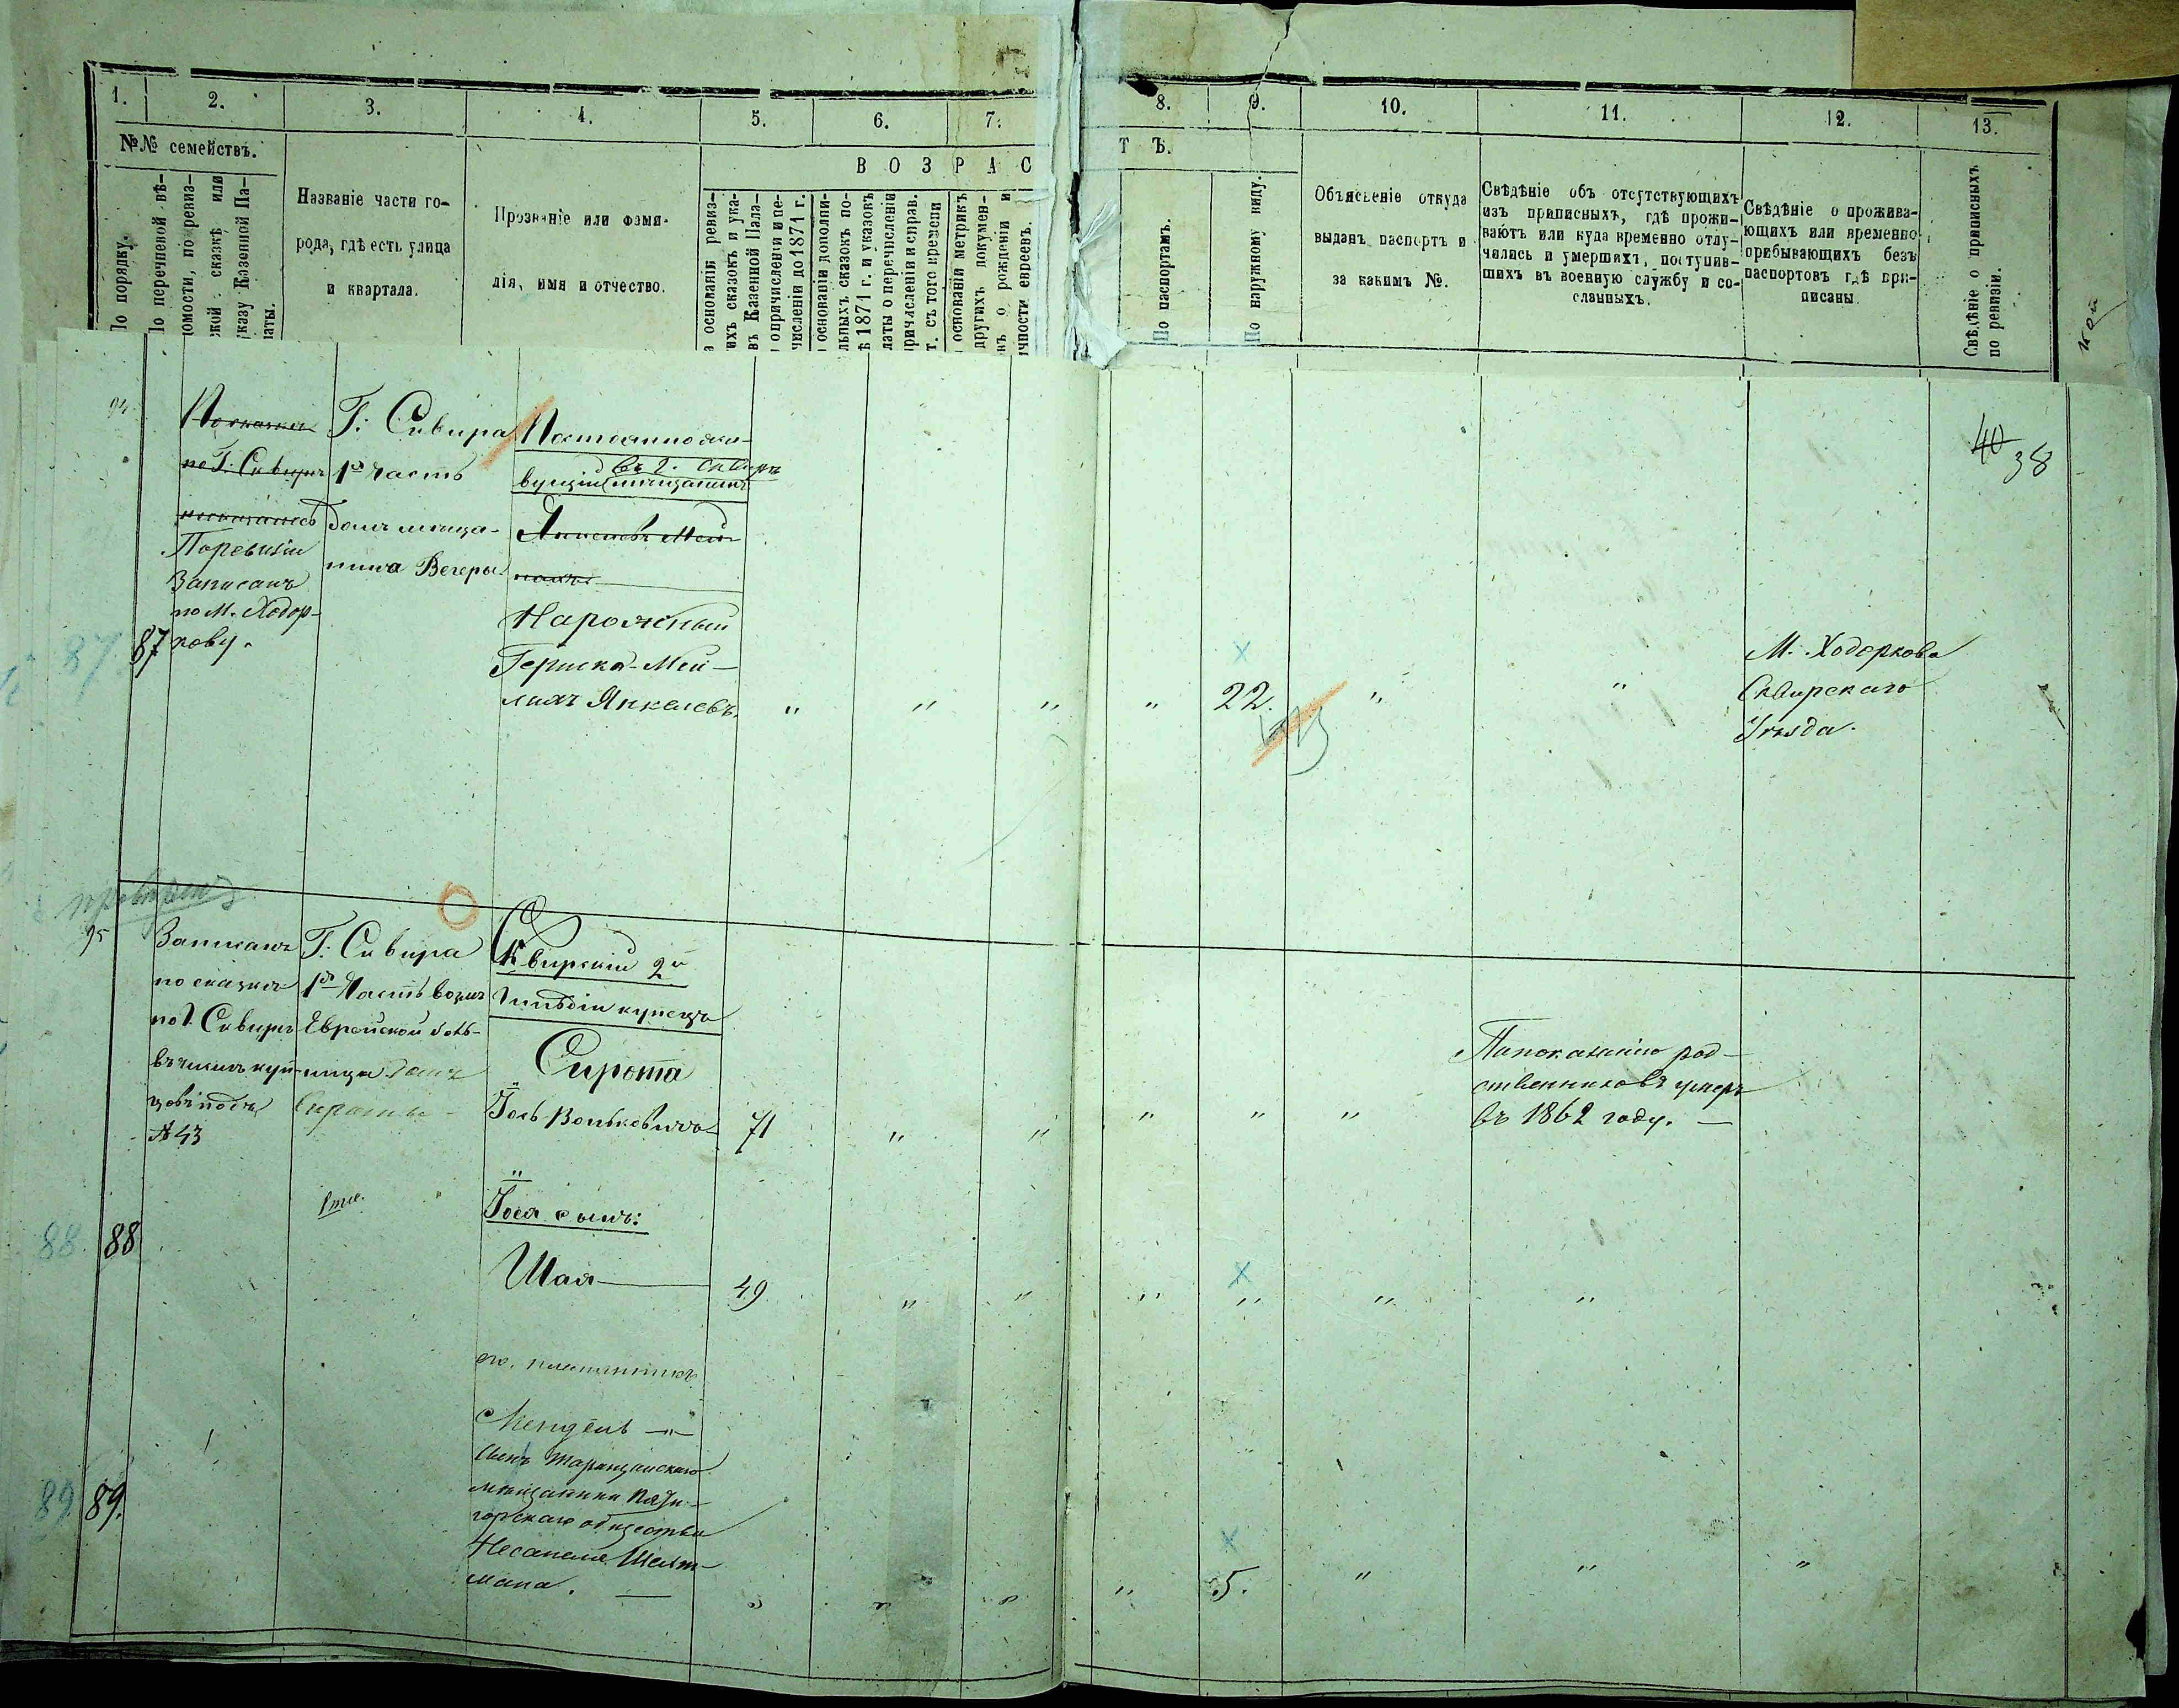 1.
2.
3.
4.
5.
6.
7.
8.
9.
10.
11.
12.
13.
№№ семействъ.
ВОЗРАС
ТЪ.
По порядку.
По перечневой вѣ-
домости, по ревиз-
ской сказкѣ или
указу Казенной Па-
латы.
Названіе части го-
рода, гдѣ есть улица
и квартала.
Прозваніе или фами-
лія, имя и отчество.
основаніи ревиз-
ихъ сказокъ и ука-
въ Казенной Пала-
о причисленіи и пе-
численіи до 1871 г.
основаніи дополни-
льныхъ сказокъ по-
ѣ 1871 г. и указовъ
латы о перечисленіи
причисленіи и справ.
г. съ того времени
основаніи метрикъ
другихъ докумен-
нъ о рожденіи и
ичности евреевъ.
По паспортамъ.
По наружному виду.
Объясненіе откуда
выданъ паспортъ и
за какимъ №.
Свѣдѣніе объ отсутствующихъ
изъ приписныхъ, гдѣ прожи-
ваютъ или куда временно отлу-
чились и умершихъ, поступив-
шихъ въ военную службу и со-
сланныхъ.
Свѣдѣніе о прожива-
ющихъ или временно
прибывающихъ безъ
паспортовъ гдѣ при-
писаны.
Свѣдѣніе о приписныхъ
по ревизіи.
94.
По сказкѣ
по Г. Сквирѣ
Поревизіи
Записанъ
по М. Ходор-
кову.
87
87
Г: Сквира
1я часть
домъ мѣща-
нина Вечеры.
Постоянно жи-
въ г. Сквирѣ
вущій мѣщанинъ
Нарожный
Гершко-Мей-
лихъ Янкелевъ.
" " " " 22. " "
М. Ходоркова
Сквирскаго
Уѣзда.
40
38
провѣренъ
95
Записанъ
по сказкѣ
по Г. Сквирѣ
въ числѣ куп-
цовъ подъ
№ 43
Г. Сквира
1я Часть возлѣ
Еврейской боль-
ницы домъ
Сироты
Сквирскій 2й
Гильдіи купецъ
Сирота
Іось Волько­вичъ
71 " " " " "
Попоказанію род-
ственниковъ умеръ
въ 1862 году. —
Іося сынъ:
88
88
Шая
49 " " " " " "
его племянникъ
Мендель
сынъ Таращанскаго
мѣщанина Пяти-
горскаго общества
89
89.
мана.
" " " " 5. " " "